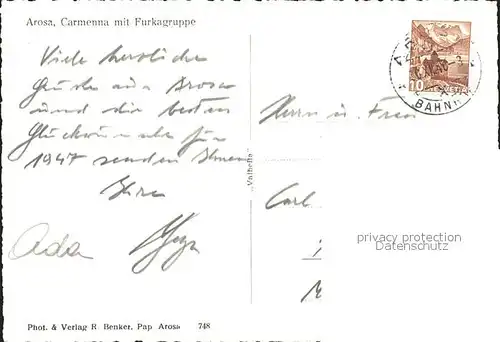 Arosa, Carmenna mit Furkagruppe
Viele herzliche
Grüsse aus Arosa
und die besten
Glückwünsche für
1947 senden Ihnen
Ihre
Ada
Herrn u. Frau
Carl
"Valbella"
10
BAHNH
privacy protection
Datenschutz
Phot. & Verlag R. Benker, Pap Arosa 748